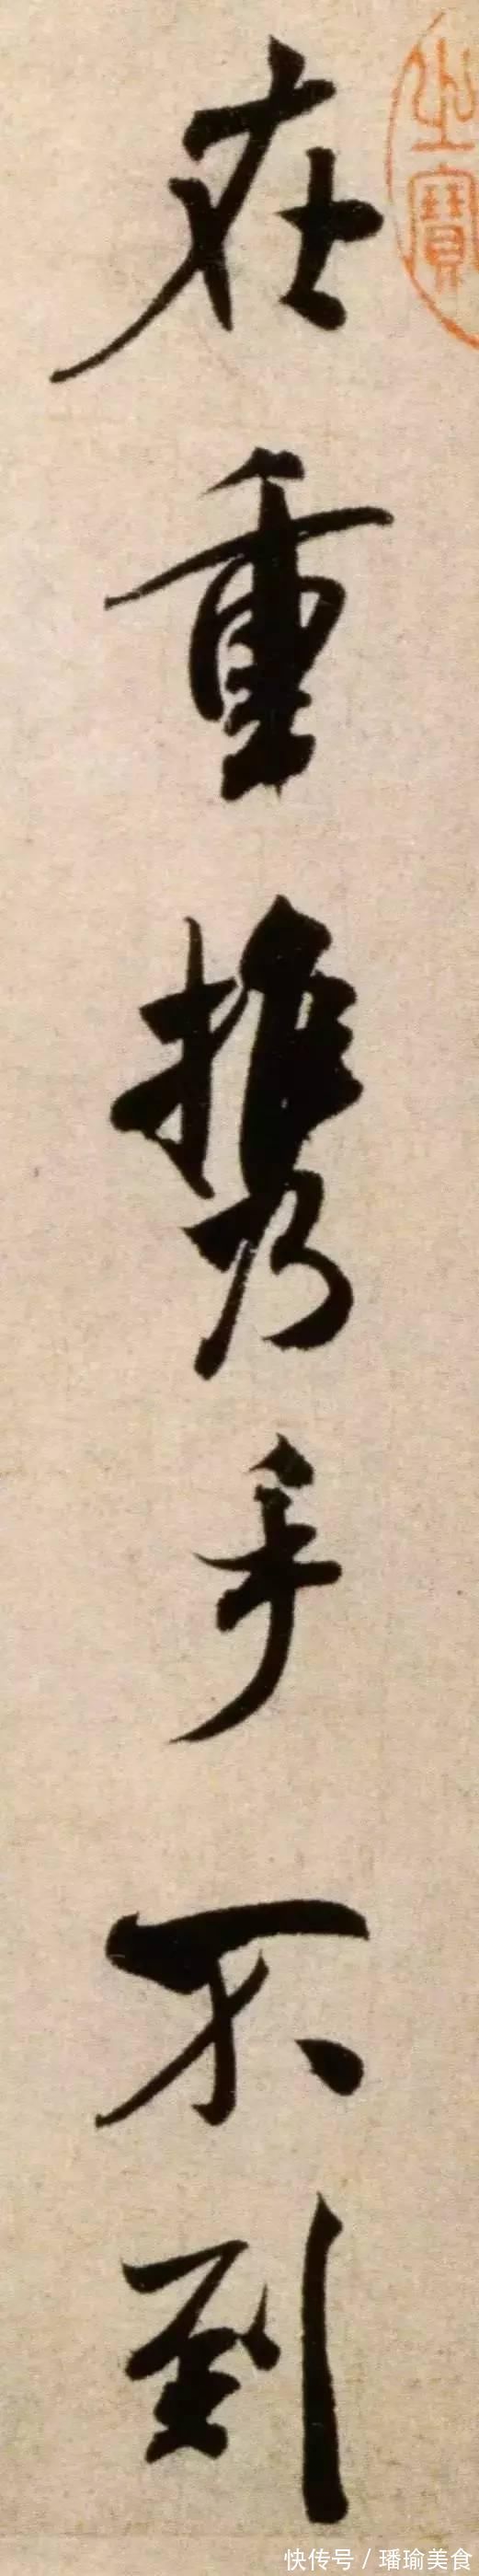 在重携手不到
之寶
快传号/璠瑜美食